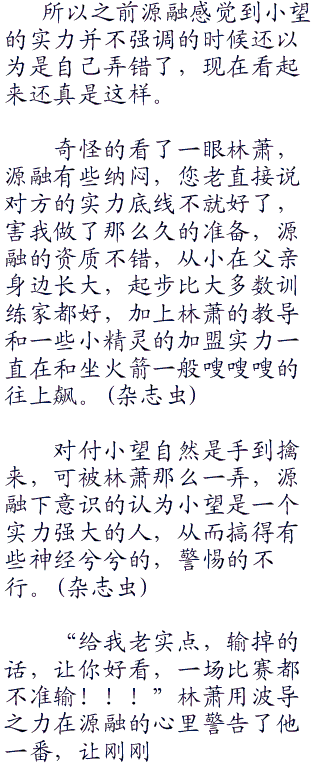 所以之前源融感觉到小望
的实力并不强调的时候还以
为是自己弄错了，现在看起
来还真是这样。
奇怪的看了一眼林萧，
源融有些纳闷，您老直接说
对方的实力底线不就好了，
害我做了那么久的准备，源
融的资质不错，从小在父亲
身边长大，起步比大多数训
练家都好，加上林萧的教导
和一些小精灵的加盟实力一
直在和坐火箭一般嗖嗖嗖的
往上飙。(杂志虫)
对付小望自然是手到擒
来，可被林萧那么一弄，源
融下意识的认为小望是一个
实力强大的人，从而搞得有
些神经兮兮的，警惕的不
行。(杂志虫)
“给我老实点，输掉的
话，让你好看，一场比赛都
不准输！！！”林萧用波导
之力在源融的心里警告了他
一番，让刚刚